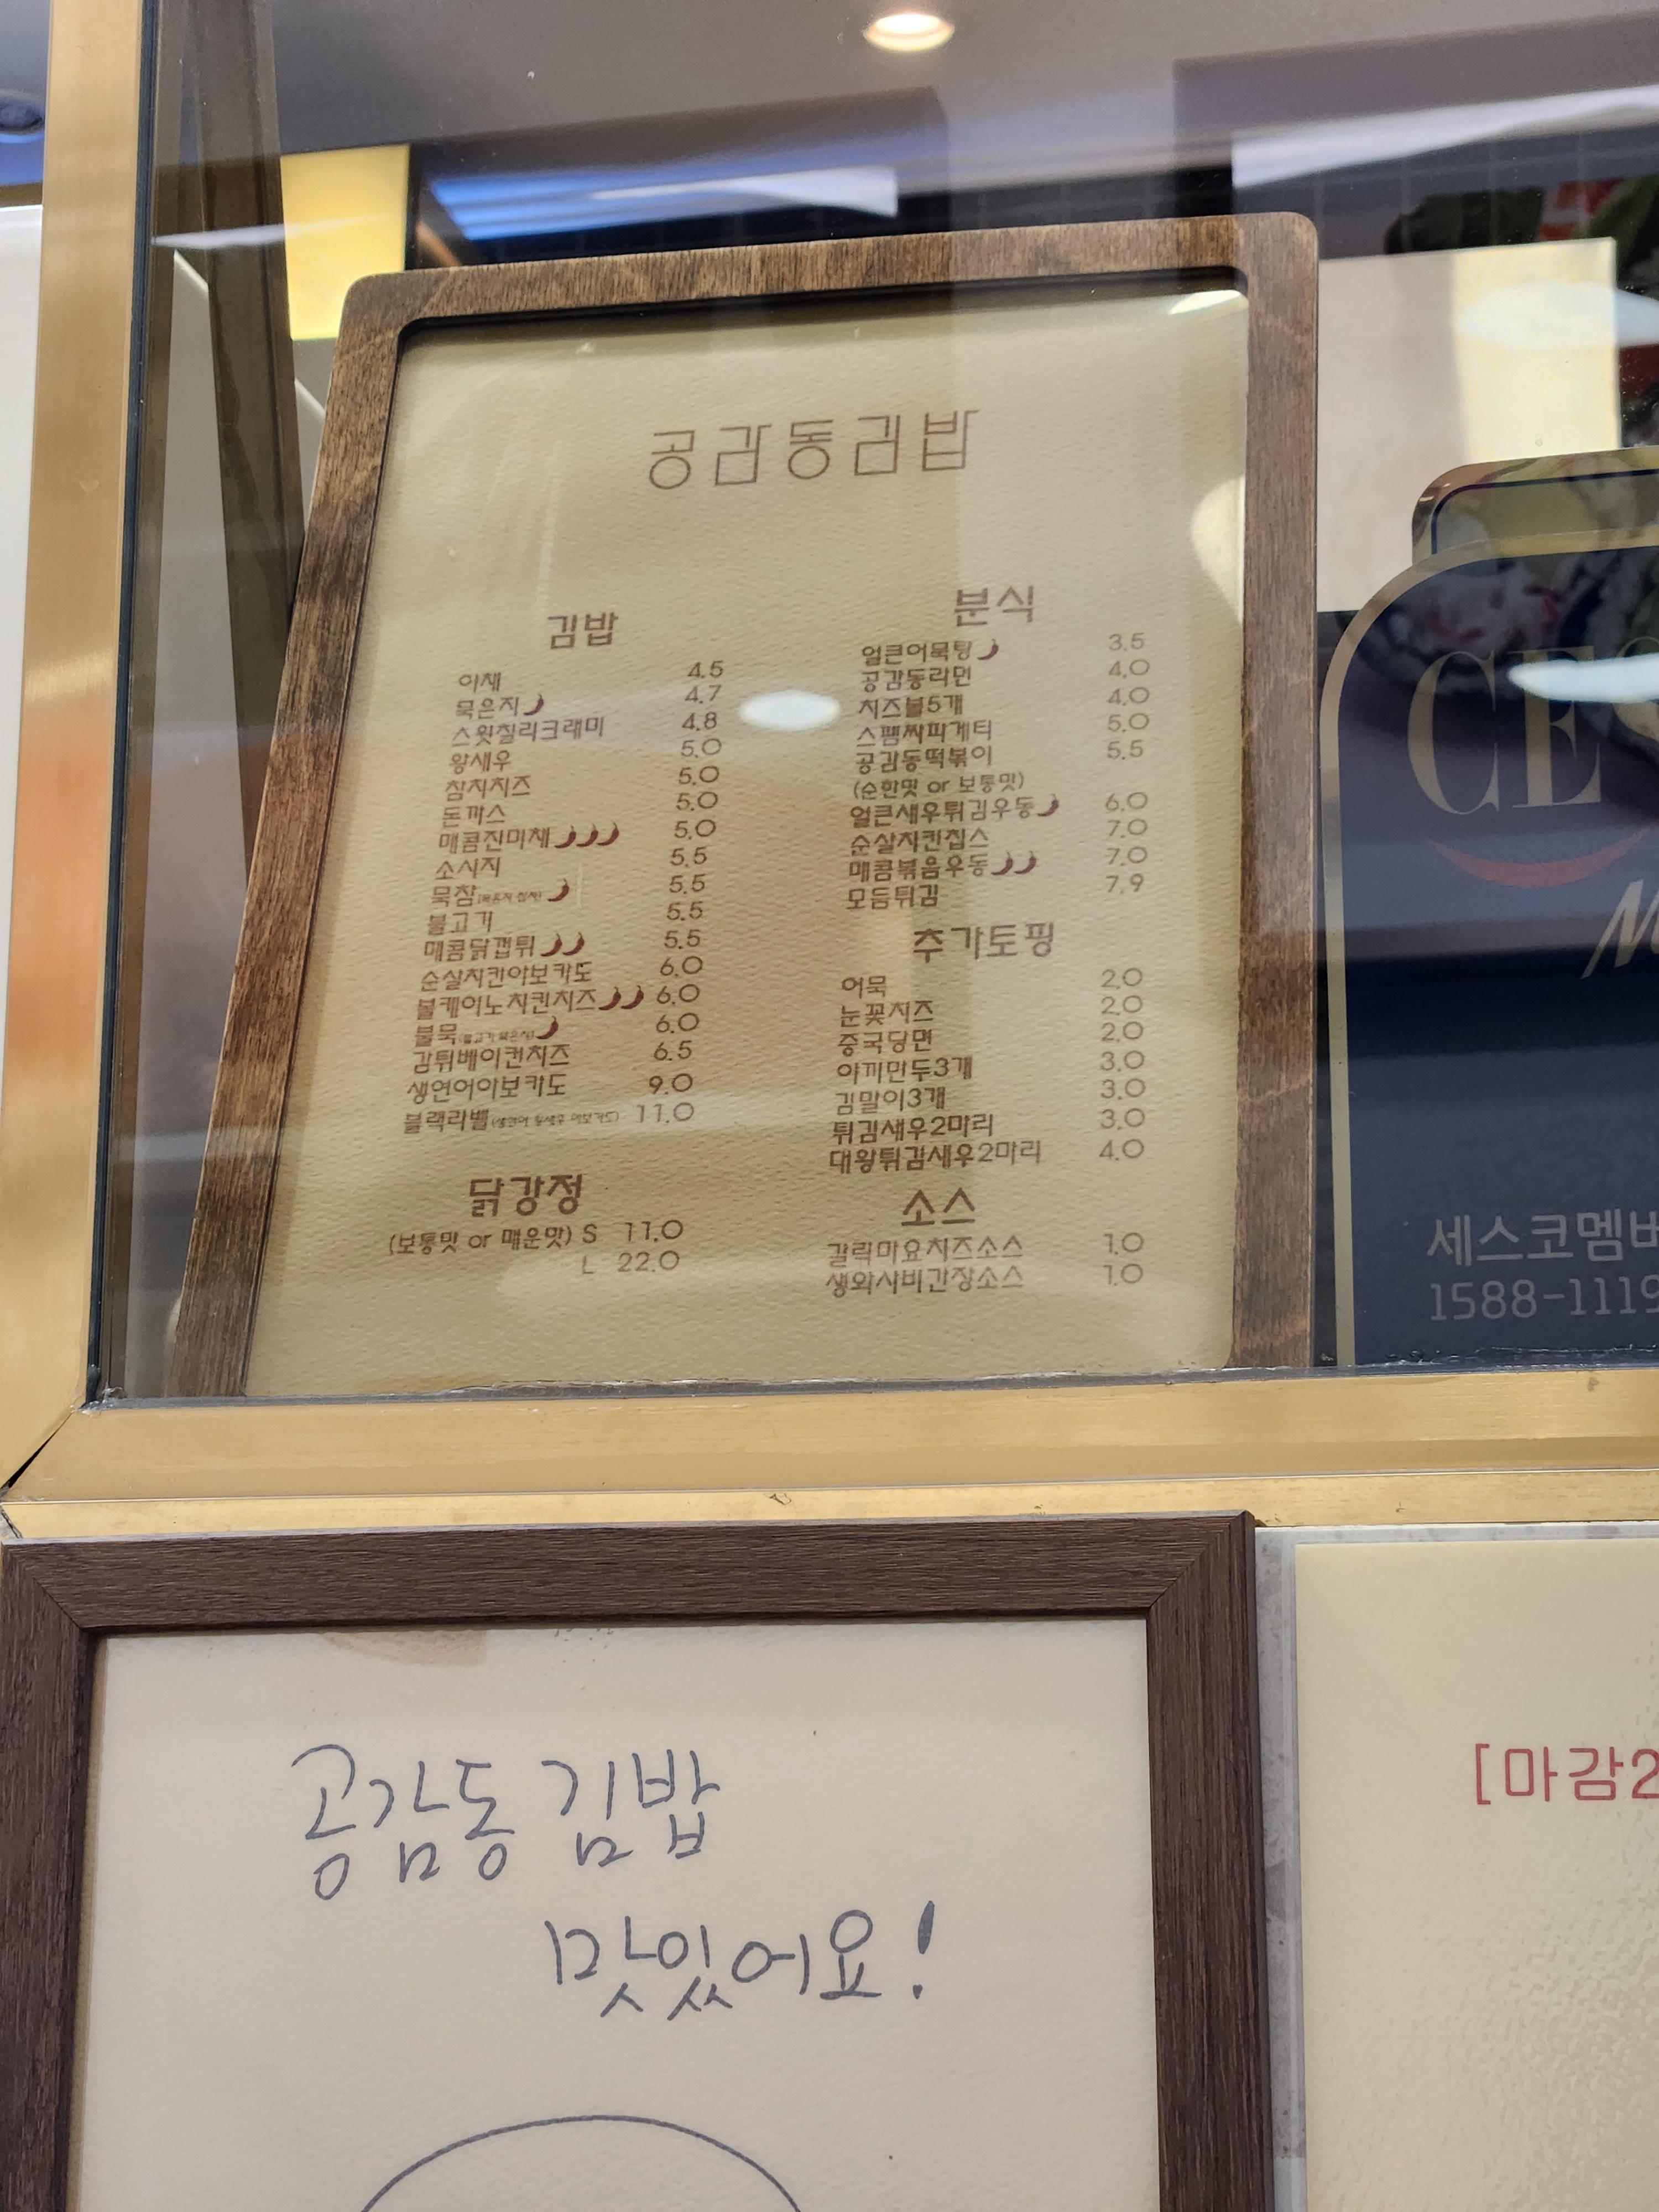 공감동김밥
김밥
야채 4.5
묵은지 4.7
스윗칠리크래미 4.8
왕새우 5.0
참치치즈 5.0
돈까스 5.0
매콤진미채 5.0
소시지 5.5
묵참(묵은지 참치) 5.5
불고기 5.5
매콤닭갭튀 5.5
순살치킨아보카도 6.0
볼케이노치킨치즈 6.0
불묵(불고기 묵은지) 6.0
감튀베이컨치즈 6.5
생연어아보카도 9.0
블랙라벨(생연어 왕새우 아보카도) 11.0
닭강정
(보통맛 or 매운맛) S 11.0
L 22.0
분식
얼큰어묵탕 3.5
공감동라면 4.0
치즈볼5개 4.0
스팸짜파게티 5.0
공감동떡볶이 5.5
(순한맛 or 보통맛)
얼큰새우튀김우동 6.0
순살치킨칩스 7.0
매콤볶음우동 7.0
모듬튀김 7.9
추가토핑
어묵 2.0
눈꽃치즈 2.0
중국당면 2.0
야끼만두3개 3.0
김말이3개 3.0
튀김새우2마리 3.0
대왕튀김새우2마리 4.0
소스
갈릭마요치즈소스 1.0
생와사비간장소스 1.0
세스코멤버
1588-1119
공감동김밥
맛있어요!
[마감2